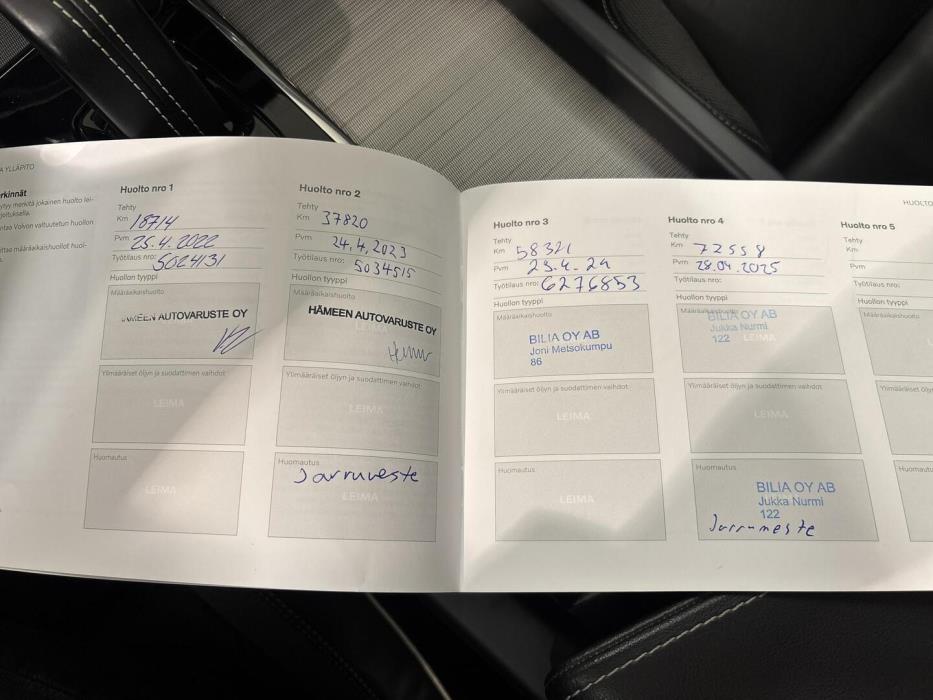 A YLLÄPITO
rkinnät
ytyy merkitä jokainen huolto lei-
joituksella.
ntaa Volvon valtuutetun huollon
ittaa määräaikaishuollot huoi-
Huolto nro 1
Tehty
Km 18714
Pvm 25.4.2022
Työtilaus nro: 5024131
Huollon tyyppi
Määräaikaishuolto
HÄMEEN AUTOVARUSTE OY
Ylimääräiset öljyn ja suodattimen vaihdot
LEIMA
Huomautus
LEIMA
Huolto nro 2
Tehty
Km 37820
Pvm 24.4.2023
Työtilaus nro: 5034515
Huollon tyyppi
Määräaikaishuolto
HÄMEEN AUTOVARUSTE OY
LEIMA
Ylimääräiset öljyn ja suodattimen vaihdot
LEIMA
Huomautus
Jarruneste
LEIMA
Huolto nro 3
Tehty
Km 58321
Pvm 23.4.24
Työtilaus nro: 6276853
Huollon tyyppi
Määräaikaishuolto
BILIA OY AB
Joni Metsokumpu
86
Ylimääräiset öljyn ja suodattimen vaihdot
LEIMA
Huomautus
LEIMA
HUOLTO
Huolto nro 4
Tehty
Km 72558
Pvm 28.04.2025
Työtilaus nro:
Huollon tyyppi
Määräaikaishuolto
BILIA OY AB
Jukka Nurmi
122 LEIMA
Ylimääräiset öljyn ja suodattimen vaihdot
LEIMA
Huomautus
BILIA OY AB
Jukka Nurmi
122
Jarruneste
Huolto nro 5
Tehty
Km
Pvm
Työtilaus nro:
Huollon tyyppi
Määräaikaishuolto
Ylimääräiset ö
Huomautu